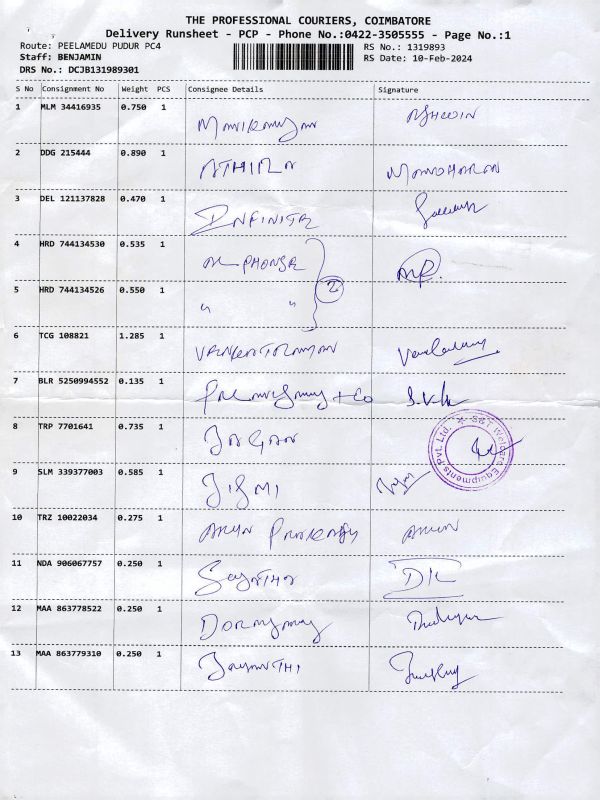 THE PROFESSIONAL COURIERS, COIMBATORE
Delivery Runsheet - PCP - Phone No.:0422-3505555 - Page No.:1
Route: PEELAMEDU PUDUR PC4 RS No.: 1319893
Staff: BENJAMIN RS Date: 10-Feb-2024
DRS No.: DCJB131989301
S No Consignment No Weight PCS Consignee Details Signature
1 MLM 34416935 0.750 1 ASHWIN
2 DDG 215444 0.890 1 ATHIRA MANOHARAN
3 DEL 121137828 0.470 1 INFINITE
4 HRD 744134530 0.535 1 ALPHONSE
5 HRD 744134526 0.550 1 " " 2
6 TCG 108821 1.285 1 VENKATRAMAN
7 BLR 5250994552 0.135 1 + Co
8 TRP 7701641 0.735 1 JAGAN S&T Welcare Equipments Pvt. Ltd.
9 SLM 339377003 0.585 1 JISMI
10 TRZ 10022034 0.275 1 ARUN PRAKASH ARUN
11 NDA 906067757 0.250 1 DK
12 MAA 863778522 0.250 1
13 MAA 863779310 0.250 1 JAYANTHI